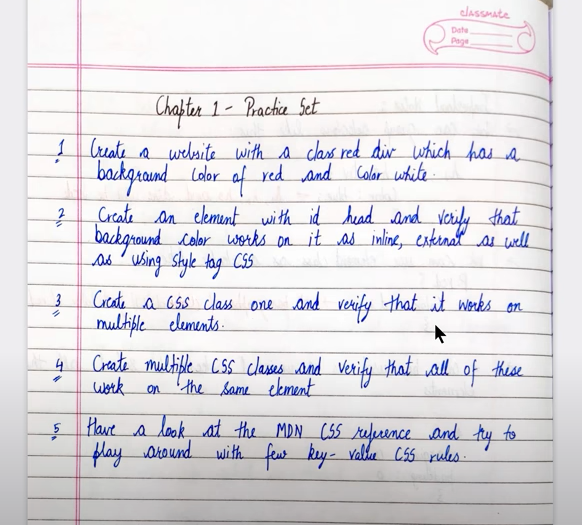 classmate
Date
Page
Chapter 1 - Practice Set
1 Create a website with a class red div which has a
background color of red and color white.
2 Create an element with id head and verify that
background color works on it as inline, external as well
as using style tag CSS
3 Create a CSS class one and verify that it works on
multiple elements.
4 Create multiple CSS classes and verify that all of these
work on the same element
5 Have a look at the MDN CSS reference and try to
play around with few key-value CSS rules.